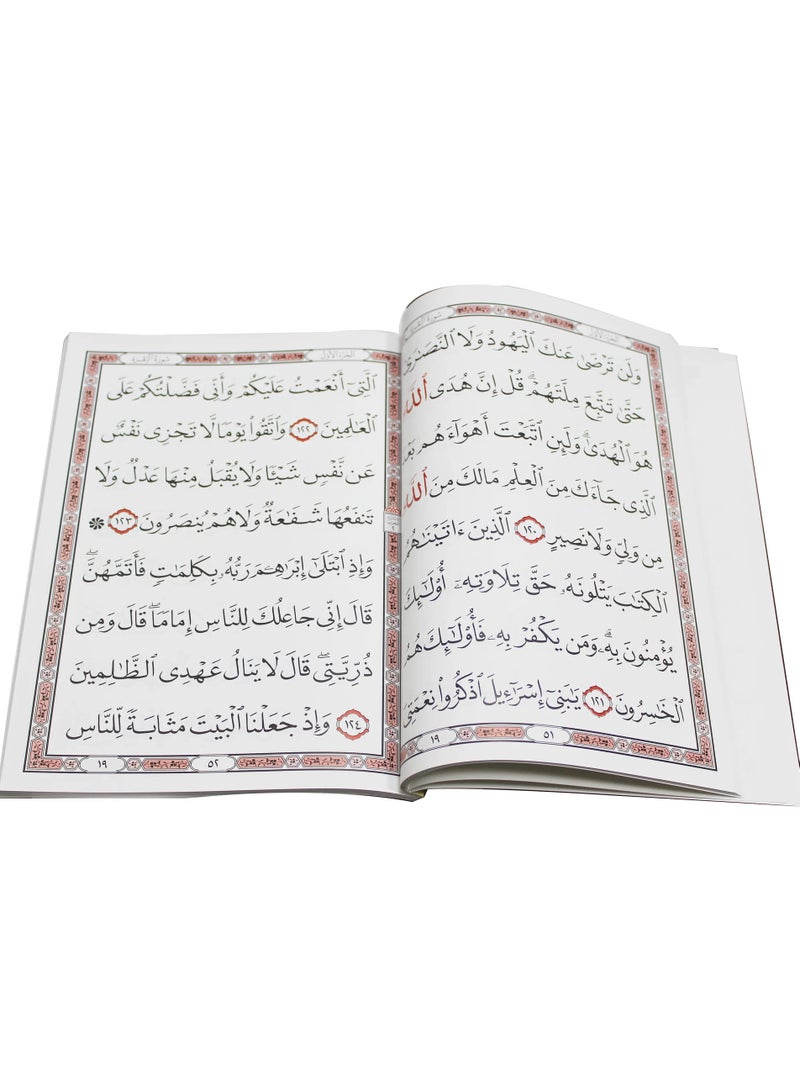 الجزء الأول سورة البقرة
وَلَن تَرْضَىٰ عَنكَ ٱلْيَهُودُ وَلَا ٱلنَّصَٰرَىٰ
حَتَّىٰ تَتَّبِعَ مِلَّتَهُمْ ۗ قُلْ إِنَّ هُدَى ٱللَّهِ
هُوَ ٱلْهُدَىٰ ۗ وَلَئِنِ ٱتَّبَعْتَ أَهْوَآءَهُم
ٱلَّذِى جَآءَكَ مِنَ ٱلْعِلْمِ مَا لَكَ مِنَ ٱللَّهِ
مِن وَلِىٍّ وَلَا نَصِيرٍ ١٢٠ ٱلَّذِينَ ءَاتَيْنَٰهُمُ
ٱلْكِتَٰبَ يَتْلُونَهُۥ حَقَّ تِلَاوَتِهِۦٓ أُو۟لَٰٓئِكَ
يُؤْمِنُونَ بِهِۦ ۗ وَمَن يَكْفُرْ بِهِۦ فَأُو۟لَٰٓئِكَ هُمُ
ٱلْخَٰسِرُونَ ١٢١ يَٰبَنِىٓ إِسْرَٰٓءِيلَ ٱذْكُرُوا۟ نِعْمَتِىَ
٥١ ١٩
الجزء الأول سورة البقرة
ٱلَّتِىٓ أَنْعَمْتُ عَلَيْكُمْ وَأَنِّى فَضَّلْتُكُمْ عَلَى
ٱلْعَٰلَمِينَ ١٢٢ وَٱتَّقُوا۟ يَوْمًا لَّا تَجْزِى نَفْسٌ
عَن نَّفْسٍ شَيْـًٔا وَلَا يُقْبَلُ مِنْهَا عَدْلٌ وَلَا
تَنفَعُهَا شَفَٰعَةٌ وَلَا هُمْ يُنصَرُونَ ١٢٣ ۞
وَإِذِ ٱبْتَلَىٰٓ إِبْرَٰهِـۧمَ رَبُّهُۥ بِكَلِمَٰتٍ فَأَتَمَّهُنَّ ۖ
قَالَ إِنِّى جَاعِلُكَ لِلنَّاسِ إِمَامًا ۖ قَالَ وَمِن
ذُرِّيَّتِى ۖ قَالَ لَا يَنَالُ عَهْدِى ٱلظَّٰلِمِينَ
١٢٤ وَإِذْ جَعَلْنَا ٱلْبَيْتَ مَثَابَةً لِّلنَّاسِ
٥٢ ١٩